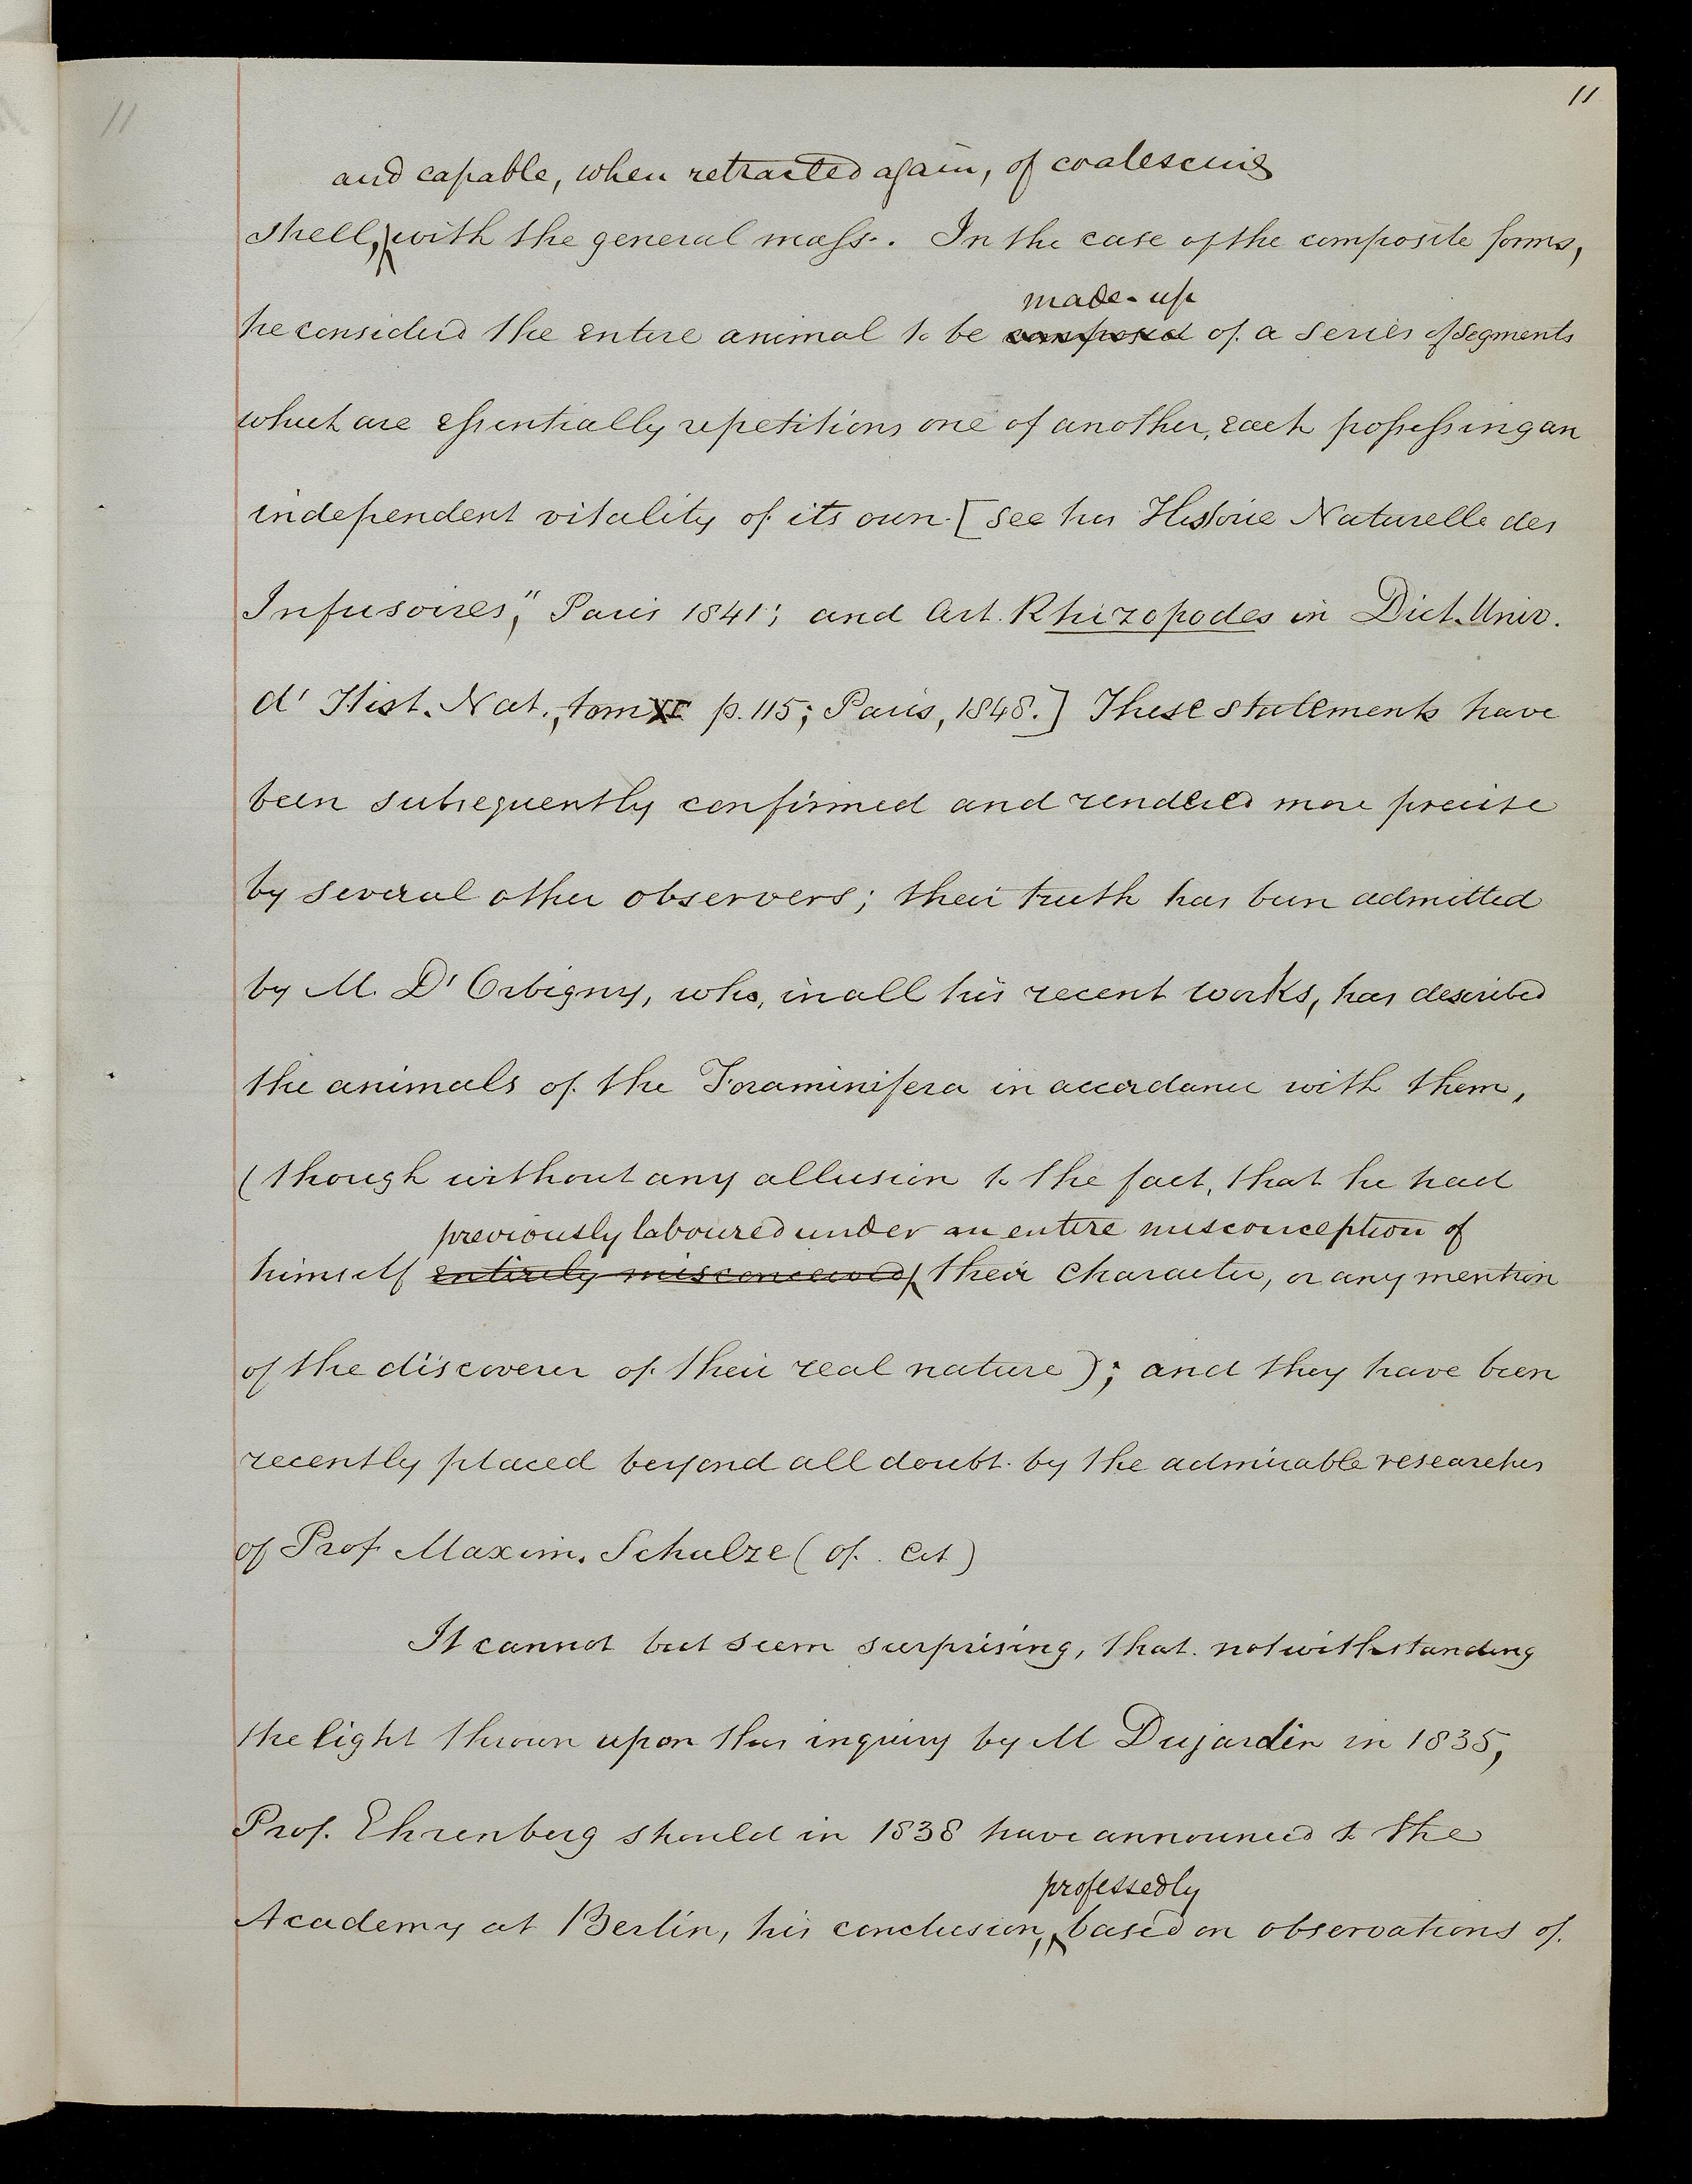 11
11
and capable, when retracted again, of coalescing
shell, with the general mass. In the case of the composite forms,
made-up
he considered the entire animal to be composed of a series of segments
which are essentially repetitions one of another, each possessing an
independent vitality of its own. [See his Histoire Naturelle des
Infusoires," Paris 1841; and Art. Rhizopodes in Dict. Univ.
d' Hist. Nat., tom XI p. 115; Paris, 1848.] These statements have
been subsequently confirmed and rendered more precise
by several other observers; their truth has been admitted
by M. D'Orbigny, who, in all his recent works, has described
the animals of the Foraminifera in accordance with them,
(though without any allusion to the fact, that he had
previously laboured under an entire misconception of
himself entirely misconceived their character, or any mention
of the discoverer of their real nature); and they have been
recently placed beyond all doubt by the admirable researches
of Prof Maxim. Schulze (op. cit)
It cannot but seem surprising, that notwithstanding
the light thrown upon this inquiry by M Dujardin in 1835,
Prof. Ehrenberg should in 1838 have announced to the
professedly
Academy at Berlin, his conclusion, based on observations of